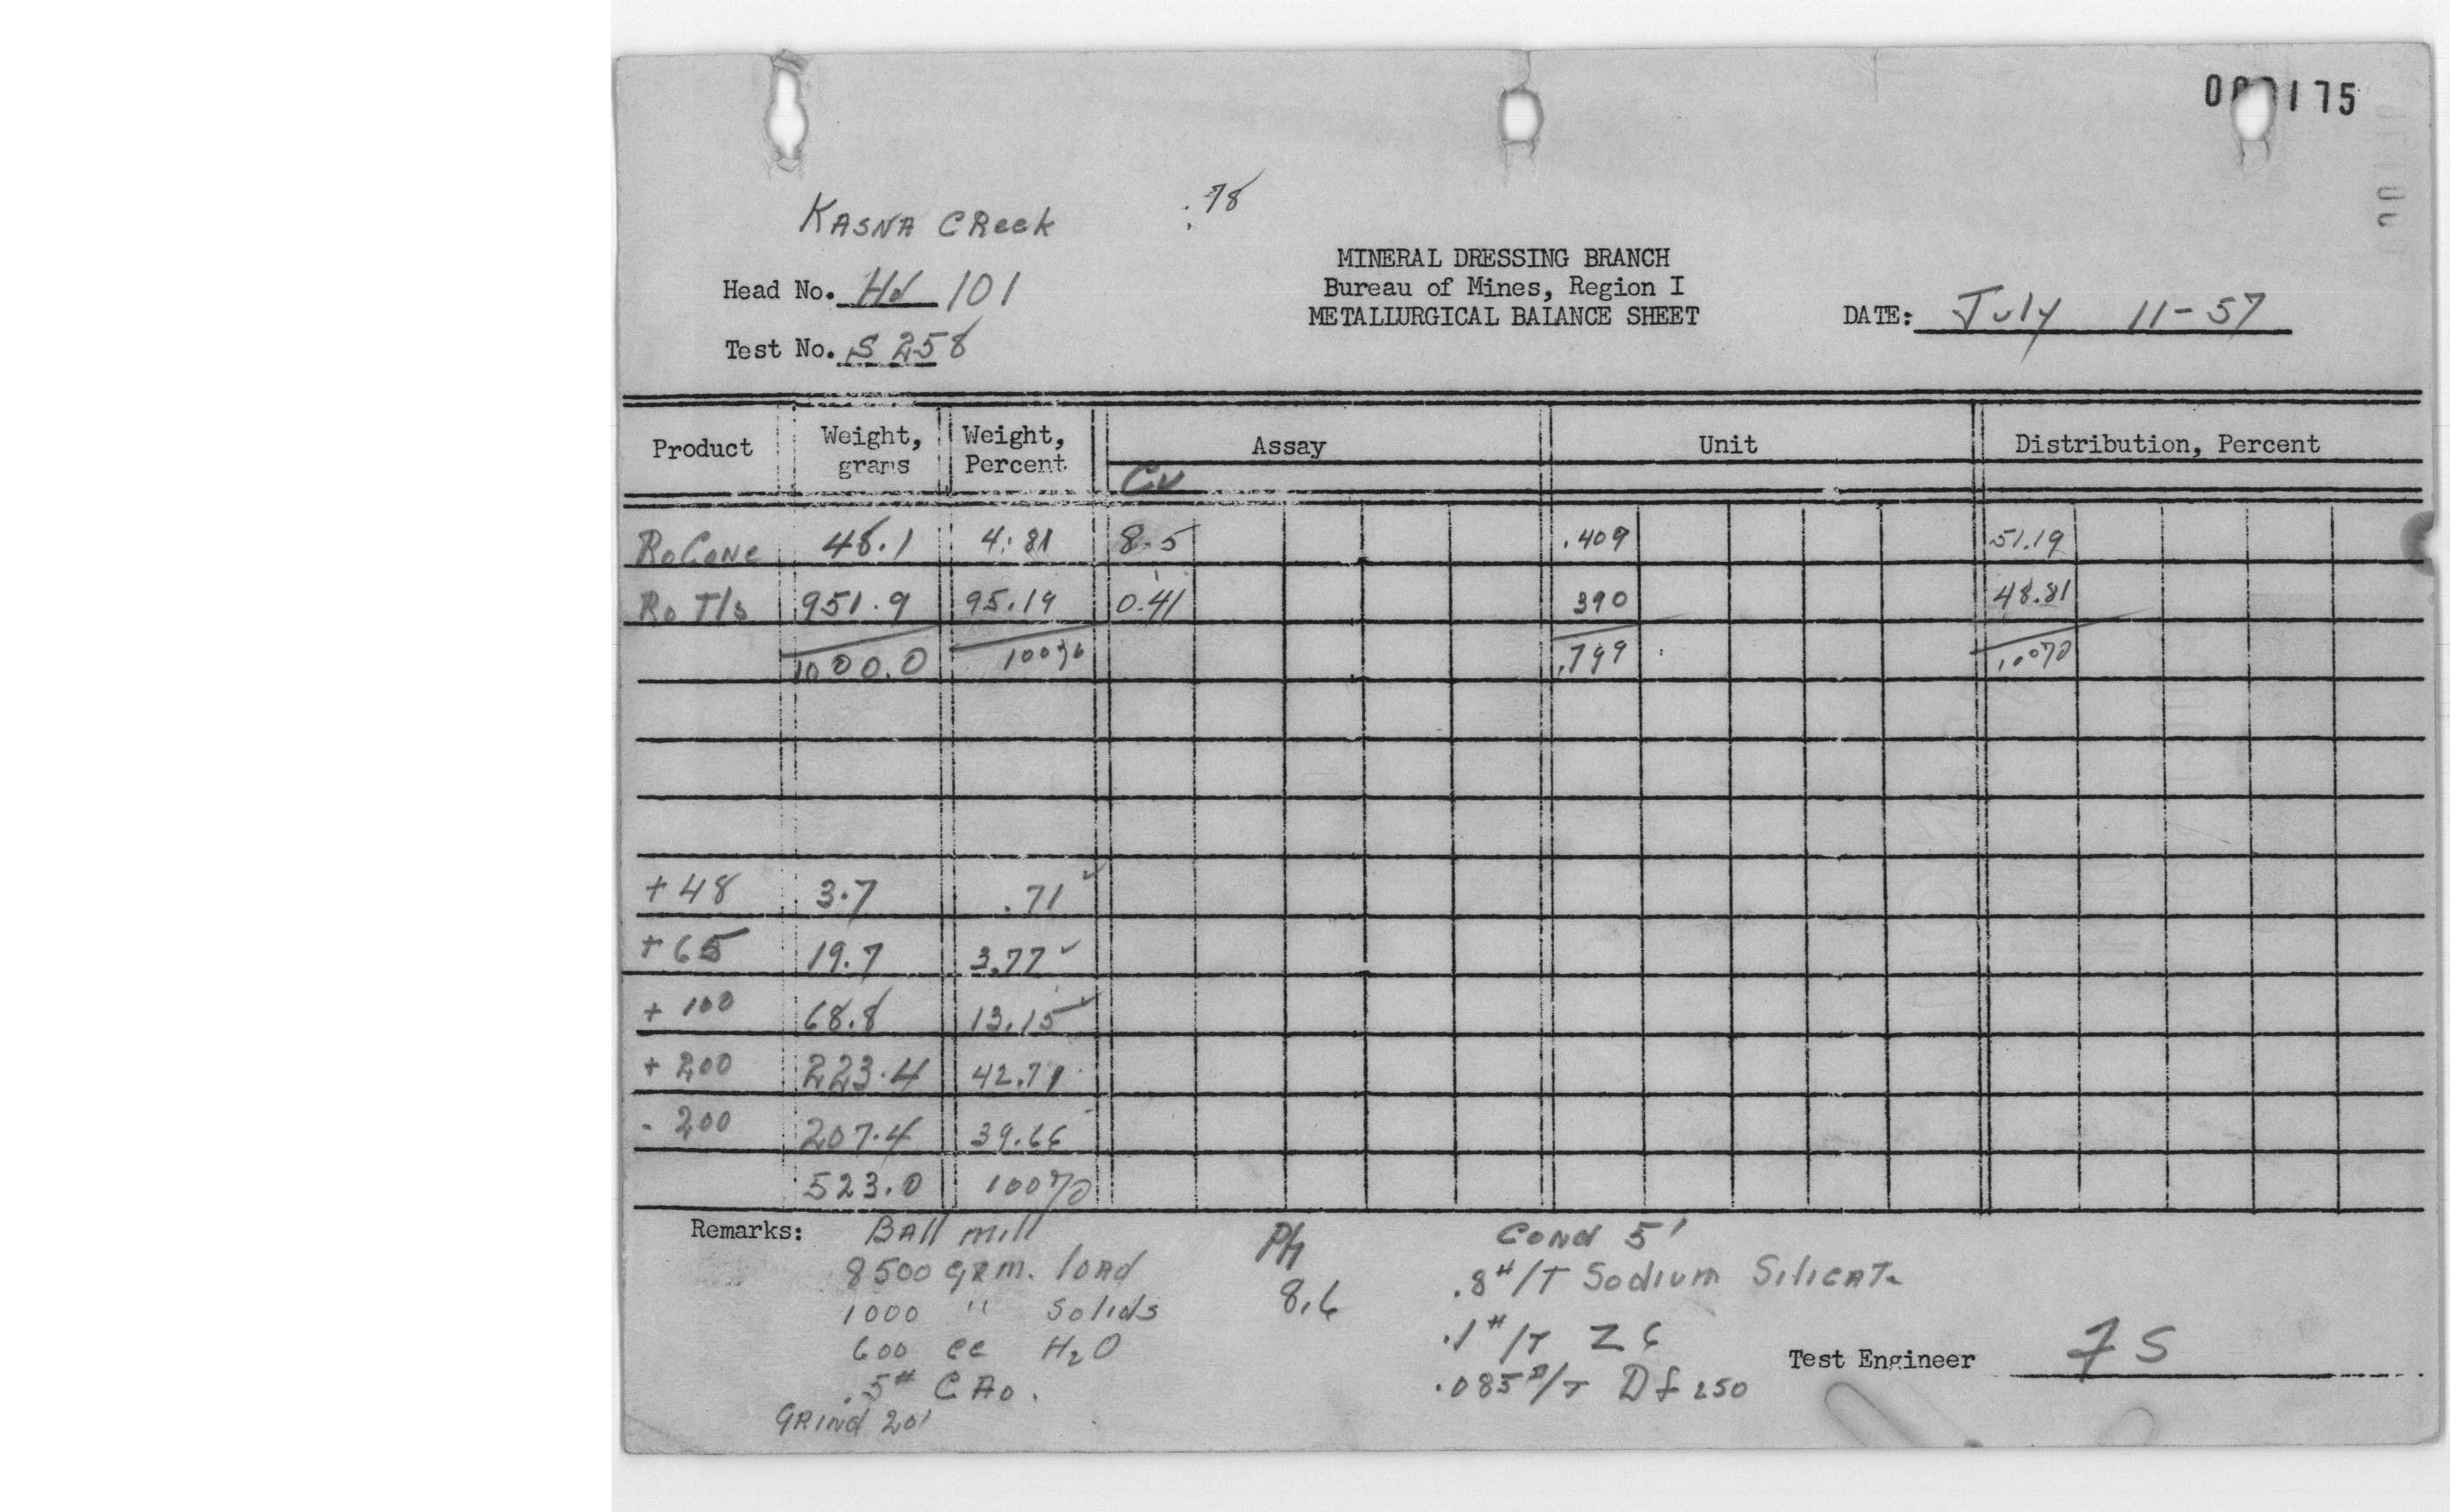 000175
.78
KASNA CReek
MINERAL DRESSING BRANCH
Head No. Hd 101
Bureau of Mines, Region I
METALLURGICAL BALANCE SHEET
DATE: July 11-57
Test No. S 258
Product Weight, grams Weight, Percent Assay Unit Distribution, Percent
Cu
Ro Conc 48.1 4.81 8.5 .409 51.19
Ro Tls 951.9 95.19 0.41 390 48.81
1000.0 100% .799 100%
+48 3.7 .71
+65 19.7 3.77
+100 68.8 13.15
+200 223.4 42.71
-200 207.4 39.66
523.0 100%
Remarks: BAll mill
8500 gRm. loAd
1000 " Solids
600 cc H2O
.5# CAo.
GRINd 20'
Ph
8.6
CoNd 5'
.8#/T Sodium SilicATe
.1#/T Z 6
.085#/T Df 250
Test Engineer FS